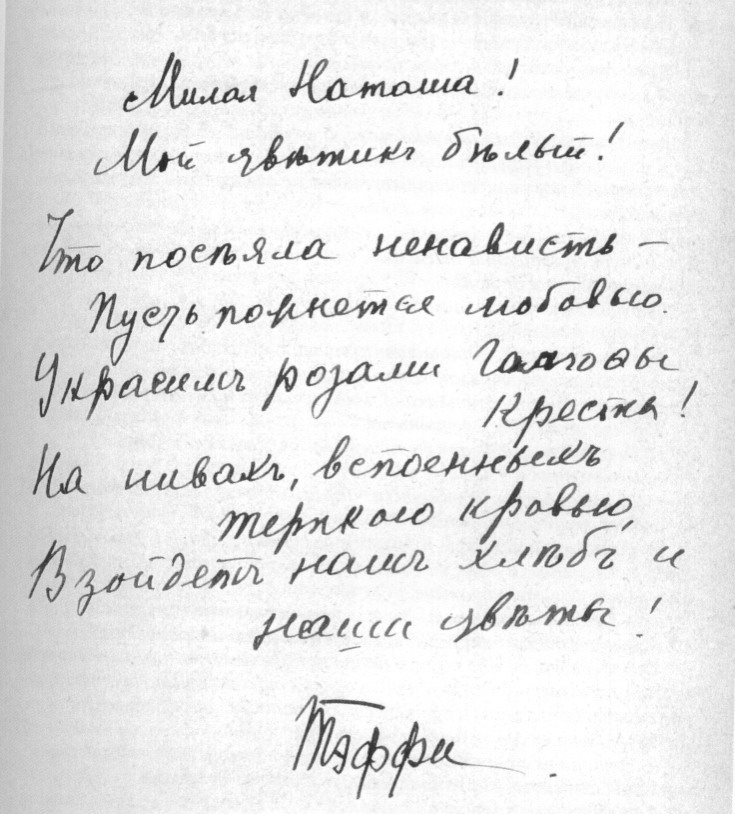 Милая Наташа!
Мой цвѣтикъ бѣлый!
Что посѣяла ненависть –
Пусть пожнется любовью.
Украсимъ розами Голгоѳы
Кресты!
На нивахъ, вспоенныхъ
терпкою кровью,
Взойдетъ нашъ хлѣбъ и
наши цвѣты!
Тэффи